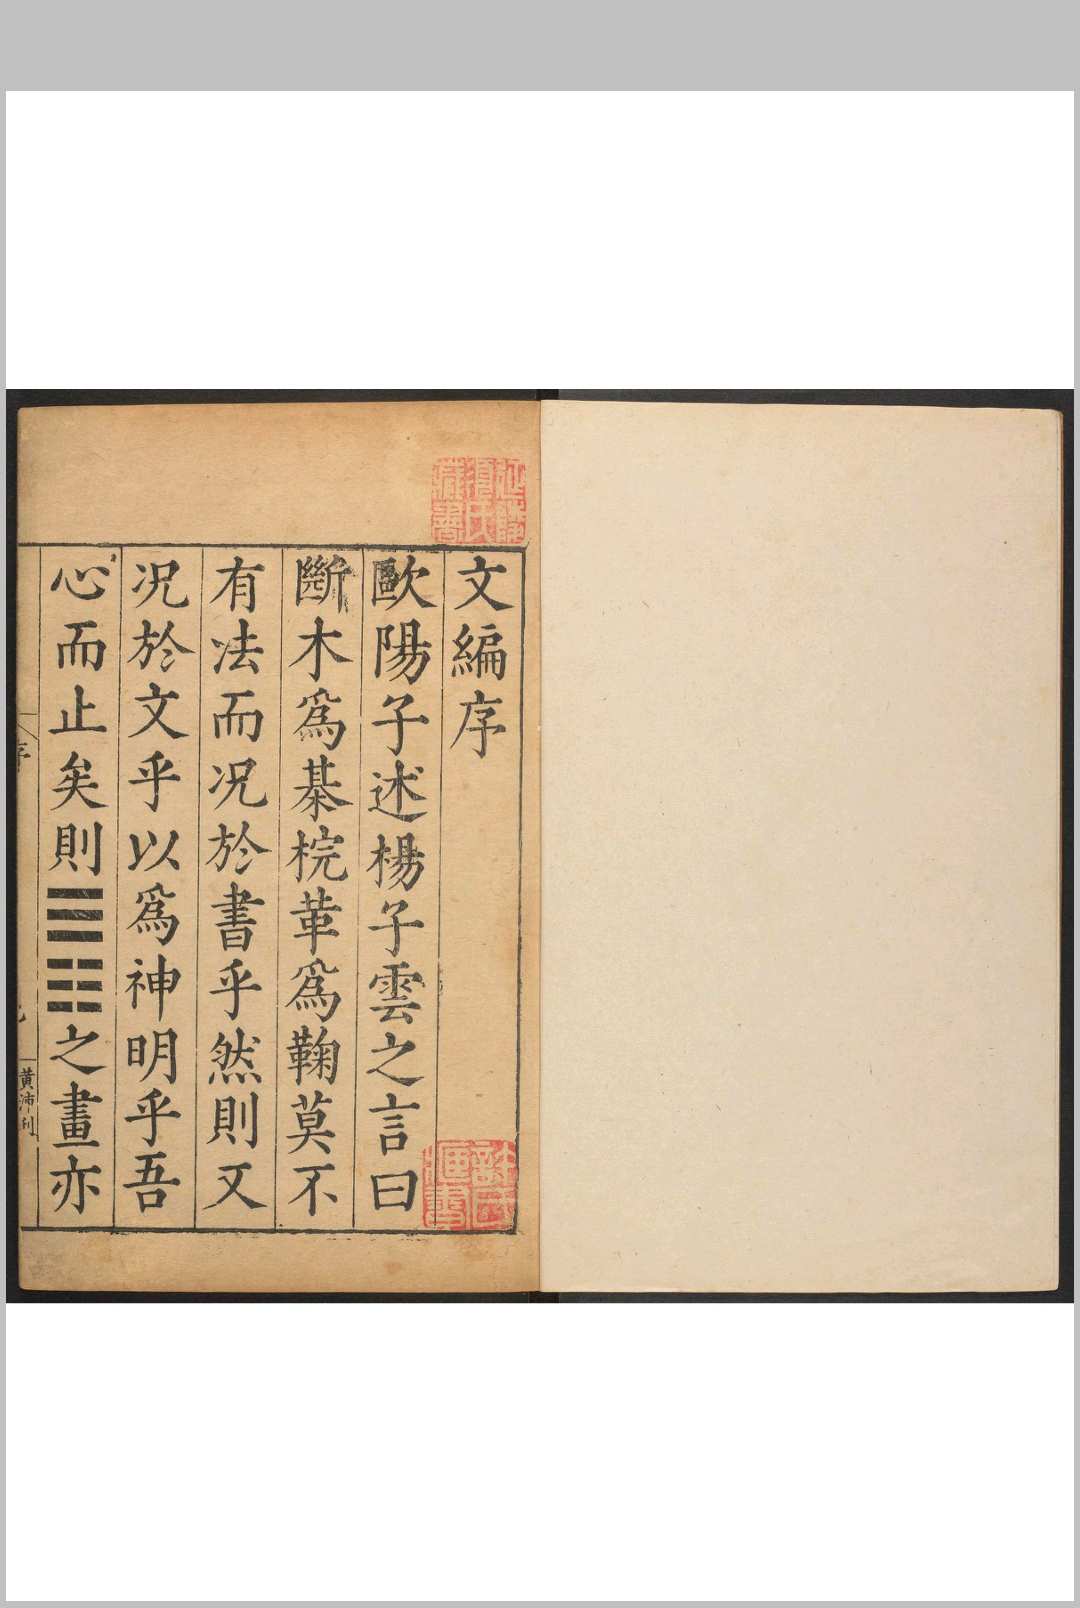 文編序
歐陽子述楊子雲之言曰
斷木爲棊梡革爲鞠莫不
有法而况於書乎然則又
况於文乎以爲神明乎吾
心而止矣則☰☷之畫亦
序
黄沛刊